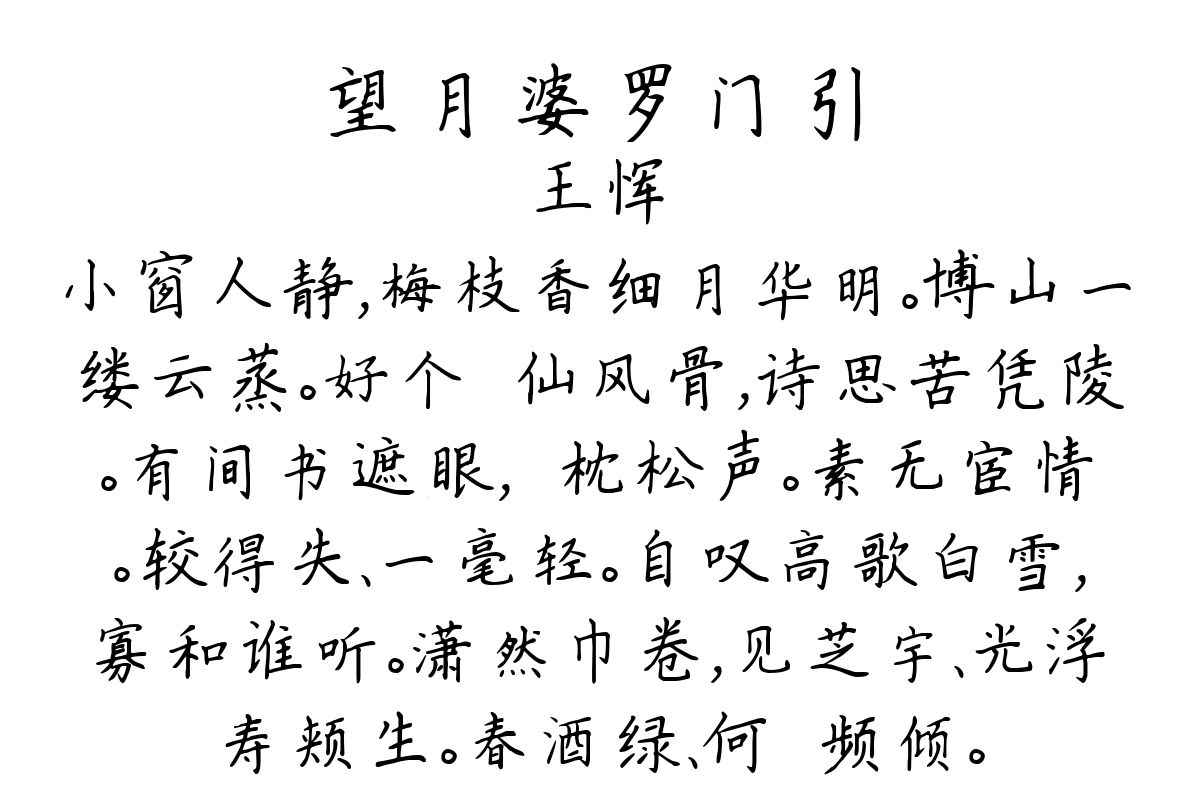 望月婆罗门引
王恽
小窗人静,梅枝香细月华明。博山一
缕云蒸。好个 仙风骨,诗思苦凭陵
。有间书遮眼, 枕松声。素无宦情
。较得失、一毫轻。自叹高歌白雪,
寡和谁听。潇然巾卷,见芝宇、光浮
寿颊生。春酒绿、何 频倾。